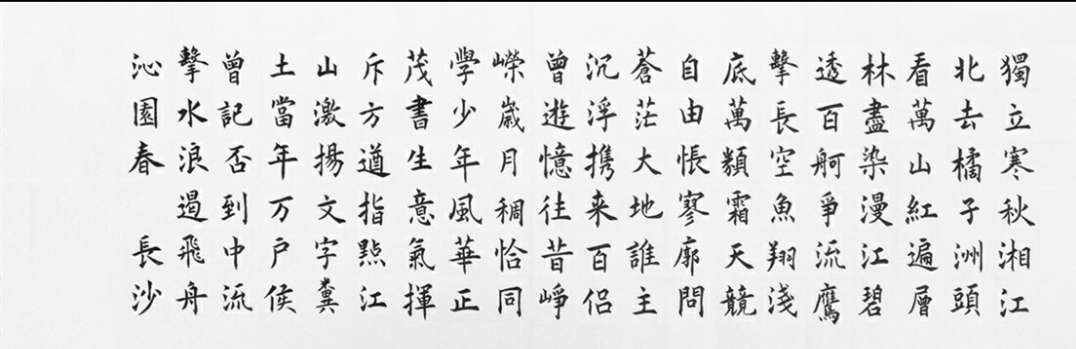 獨立寒秋湘江
北去橘子洲頭
看萬山紅遍層
林盡染漫江碧
透百舸爭流鷹
擊長空魚翔淺
底萬類霜天競
自由悵寥廓問
蒼茫大地誰主
沉浮携来百侣
曾遊憶往昔崢
嶸歲月稠恰同
學少年風華正
茂書生意氣揮
斥方遒指點江
山激揚文字糞
土當年万户侯
曾記否到中流
擊水浪遏飛舟
沁園春 長沙